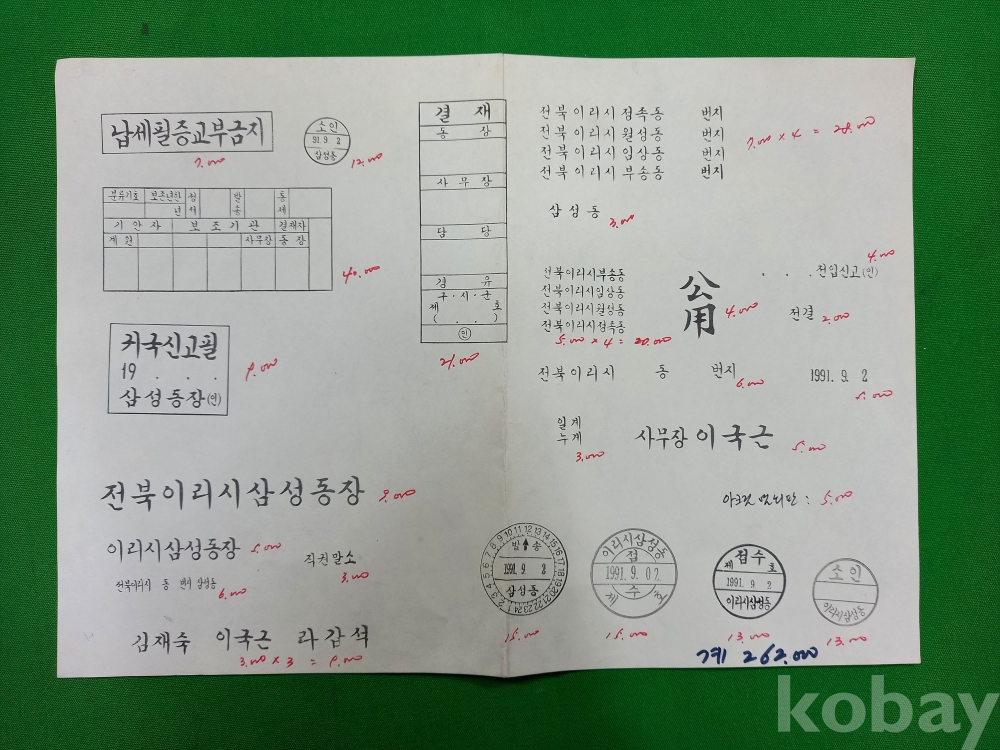 납세필증교부금지
7.000
소인
91.9.2
삼성동
12.000
분류기호 보존년한 정서 발송 통제
년
기안자 보조기관 결재자
계원 사무장 동장
40.000
귀국신고필
19 . . .
삼성동장(인)
9.000
전북이리시삼성동장
9.000
이리시삼성동장
5.000
직권말소
3.000
전북이리시 동 번지 삼성동
6.000
김재숙 이국근 라갑석
3.000 x 3 = 9.000
결재
동장
사무장
담당
경유
구·시·군
제 호
( . . )
(인)
21.000
전북이리시정족동 번지
전북이리시월성동 번지
전북이리시임상동 번지
전북이리시부송동 번지
7.000 x 4 = 28.000
삼성동
3.000
전북이리시부송동
전북이리시임상동
전북이리시월성동
전북이리시정족동
5.000 x 4 = 20.000
公用
4.000
. . . 전입신고(인)
4.000
전결
2.000
전북이리시 동 번지
6.000
1991. 9. 2
5.000
일계
누계
3.000
사무장 이국근
5.000
: 5.000
6 7 8 9 10 11 12 13 14 15 16 17 18 19 20 21 22 23 24 1 2 3 4 5
발송
1991. 9. 2
삼성동
15.000
이리시삼성동
접
1991. 9. 02
제 수 호
15.000
접수
제 호
1991. 9. 2
이리시삼성동
13.000
소인
이리시삼성동
13.000
계 262.000
kobay